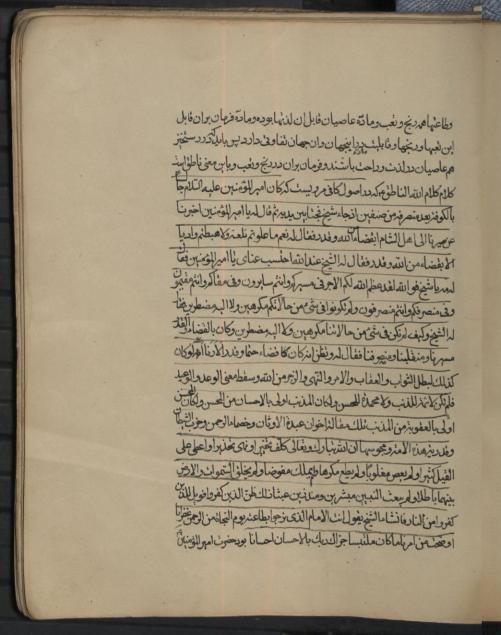 وطاعتها همه رنج و تعب و مادهٔ عاصیان قابل ان لذتها بوده و مادهٔ فرمان بران قابل
این تعبها و رنجها و قابلیت درین جهان و ان جهان تفاوتی ندارد پس باید که در رستخیز
هم عاصیان در لذت و راحت باشند و فرمان بران در رنج و تعب و باین معنی ناطق است
کلام کلام الله الناطق که در اصول کافی مرویست که کان امیر المؤمنین علیه السلام جالسا
بالکوفة بعد منصرفه من صفین اذ جاء شیخ فجثا بین یدیه ثم قال له یا امیر المؤمنین اخبرنا
عن مسیرنا الی اهل الشام ابقضاء من الله وقدر فقال له نعم ما علوتم تلعة ولا هبطتم وادیا
الا بقضاء من الله وقدر فقال له الشیخ عند الله احتسب عنای یا امیر المؤمنین فقال
له مه یا شیخ فوالله لقد عظم الله لکم الاجر فی مسیرکم وانتم سایرون وفی مقامکم وانتم مقیمون
وفی منصرفکم وانتم منصرفون ولم تکونوا فی شیء من حالاتکم مکرهین ولا الیه مضطرین فقال
له الشیخ وکیف لم نکن فی شیء من حالاتنا مکرهین ولا الیه مضطرین وکان بالقضاء والقدر
مسیرنا ومنقلبنا ومنصرفنا فقال له وتظن انه کان قضاء حتما وقدرا لازما انه لو کان
کذلک لبطل الثواب والعقاب والامر والنهی والزجر من الله وسقط معنی الوعد والوعید
فلم تکن لائمة للمذنب ولا محمدة للمحسن ولکان المذنب اولی بالاحسان من المحسن ولکان المحسن
اولی بالعقوبة من المذنب تلک مقالة اخوان عبدة الاوثان وخصماء الرحمن وحزب الشیطان
وقدریة هذه الامة ومجوسها ان الله تبارک وتعالی کلف تخییرا ونهی تحذیرا واعطی علی
القلیل کثیرا ولم یعص مغلوبا ولم یطع مکرها ولم یملک مفوضا ولم یخلق السموات والارض
بینهما باطلا ولم یبعث النبیین مبشرین ومنذرین عبثا ذلک ظن الذین کفروا فویل للذین
کفروا من النار فانشا الشیخ یقول انت الامام الذی نرجو بطاعته یوم النجاة من الرحمن غفرانا
اوضحت من امرنا ما کان ملتبسا جزاک ربک بالاحسان احسانا بود حضرت امیر المؤمنین